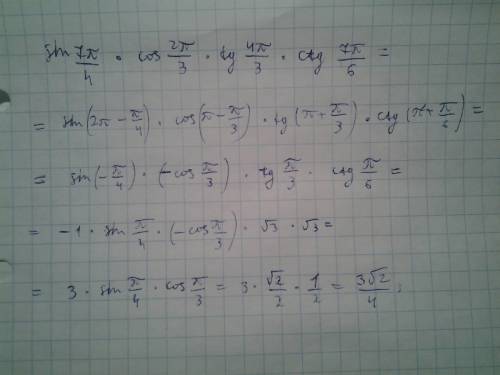 sin 7π/4 · cos 2π/3 · tg 4π/3 · ctg 7π/6 =
= sin(2π − π/4) · cos(π − π/3) · tg(π + π/3) · ctg(π + π/6) =
= sin(−π/4) · (−cos π/3) · tg π/3 · ctg π/6 =
= −1 · sin π/4 · (−cos π/3) · √3 · √3 =
= 3 · sin π/4 · cos π/3 = 3 · √2/2 · 1/2 = 3√2/4;